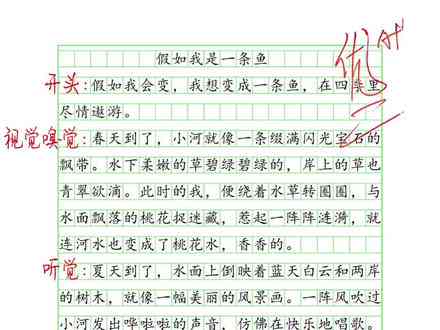 假如我是一条鱼
优 A+
开头:假如我会变，我想变成一条鱼，在四季里
尽情遨游。
视觉嗅觉:春天到了，小河就像一条缀满闪光宝石的
飘带。水下柔嫩的草碧绿碧绿的，岸上的草也
青翠欲滴。此时的我，便绕着水草转圈圈，与
水面飘落的桃花捉迷藏，惹起一阵阵涟漪，就
连河水也变成了桃花水，香香的。
听觉:夏天到了，水面上倒映着蓝天白云和两岸
的树木，就像一幅美丽的风景画。一阵风吹过
小河发出哗啦啦的声音，仿佛在快乐地唱歌。